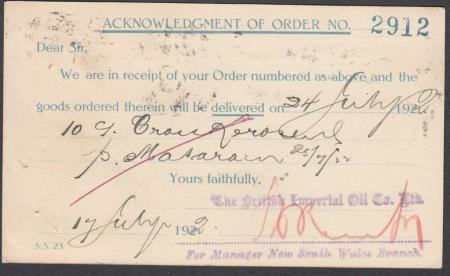 ACKNOWLEDGMENT OF ORDER NO. 2912
Dear Sir,
We are in receipt of your Order numbered as above and the
goods ordered therein will be delivered on 24 July 1922
10 G. Kerosene
p. Mataram 25/7/22
Yours faithfully,
The British Imperial Oil Co. Ltd.
17 July 1922
S.S. 23
For Manager New South Wales Branch.